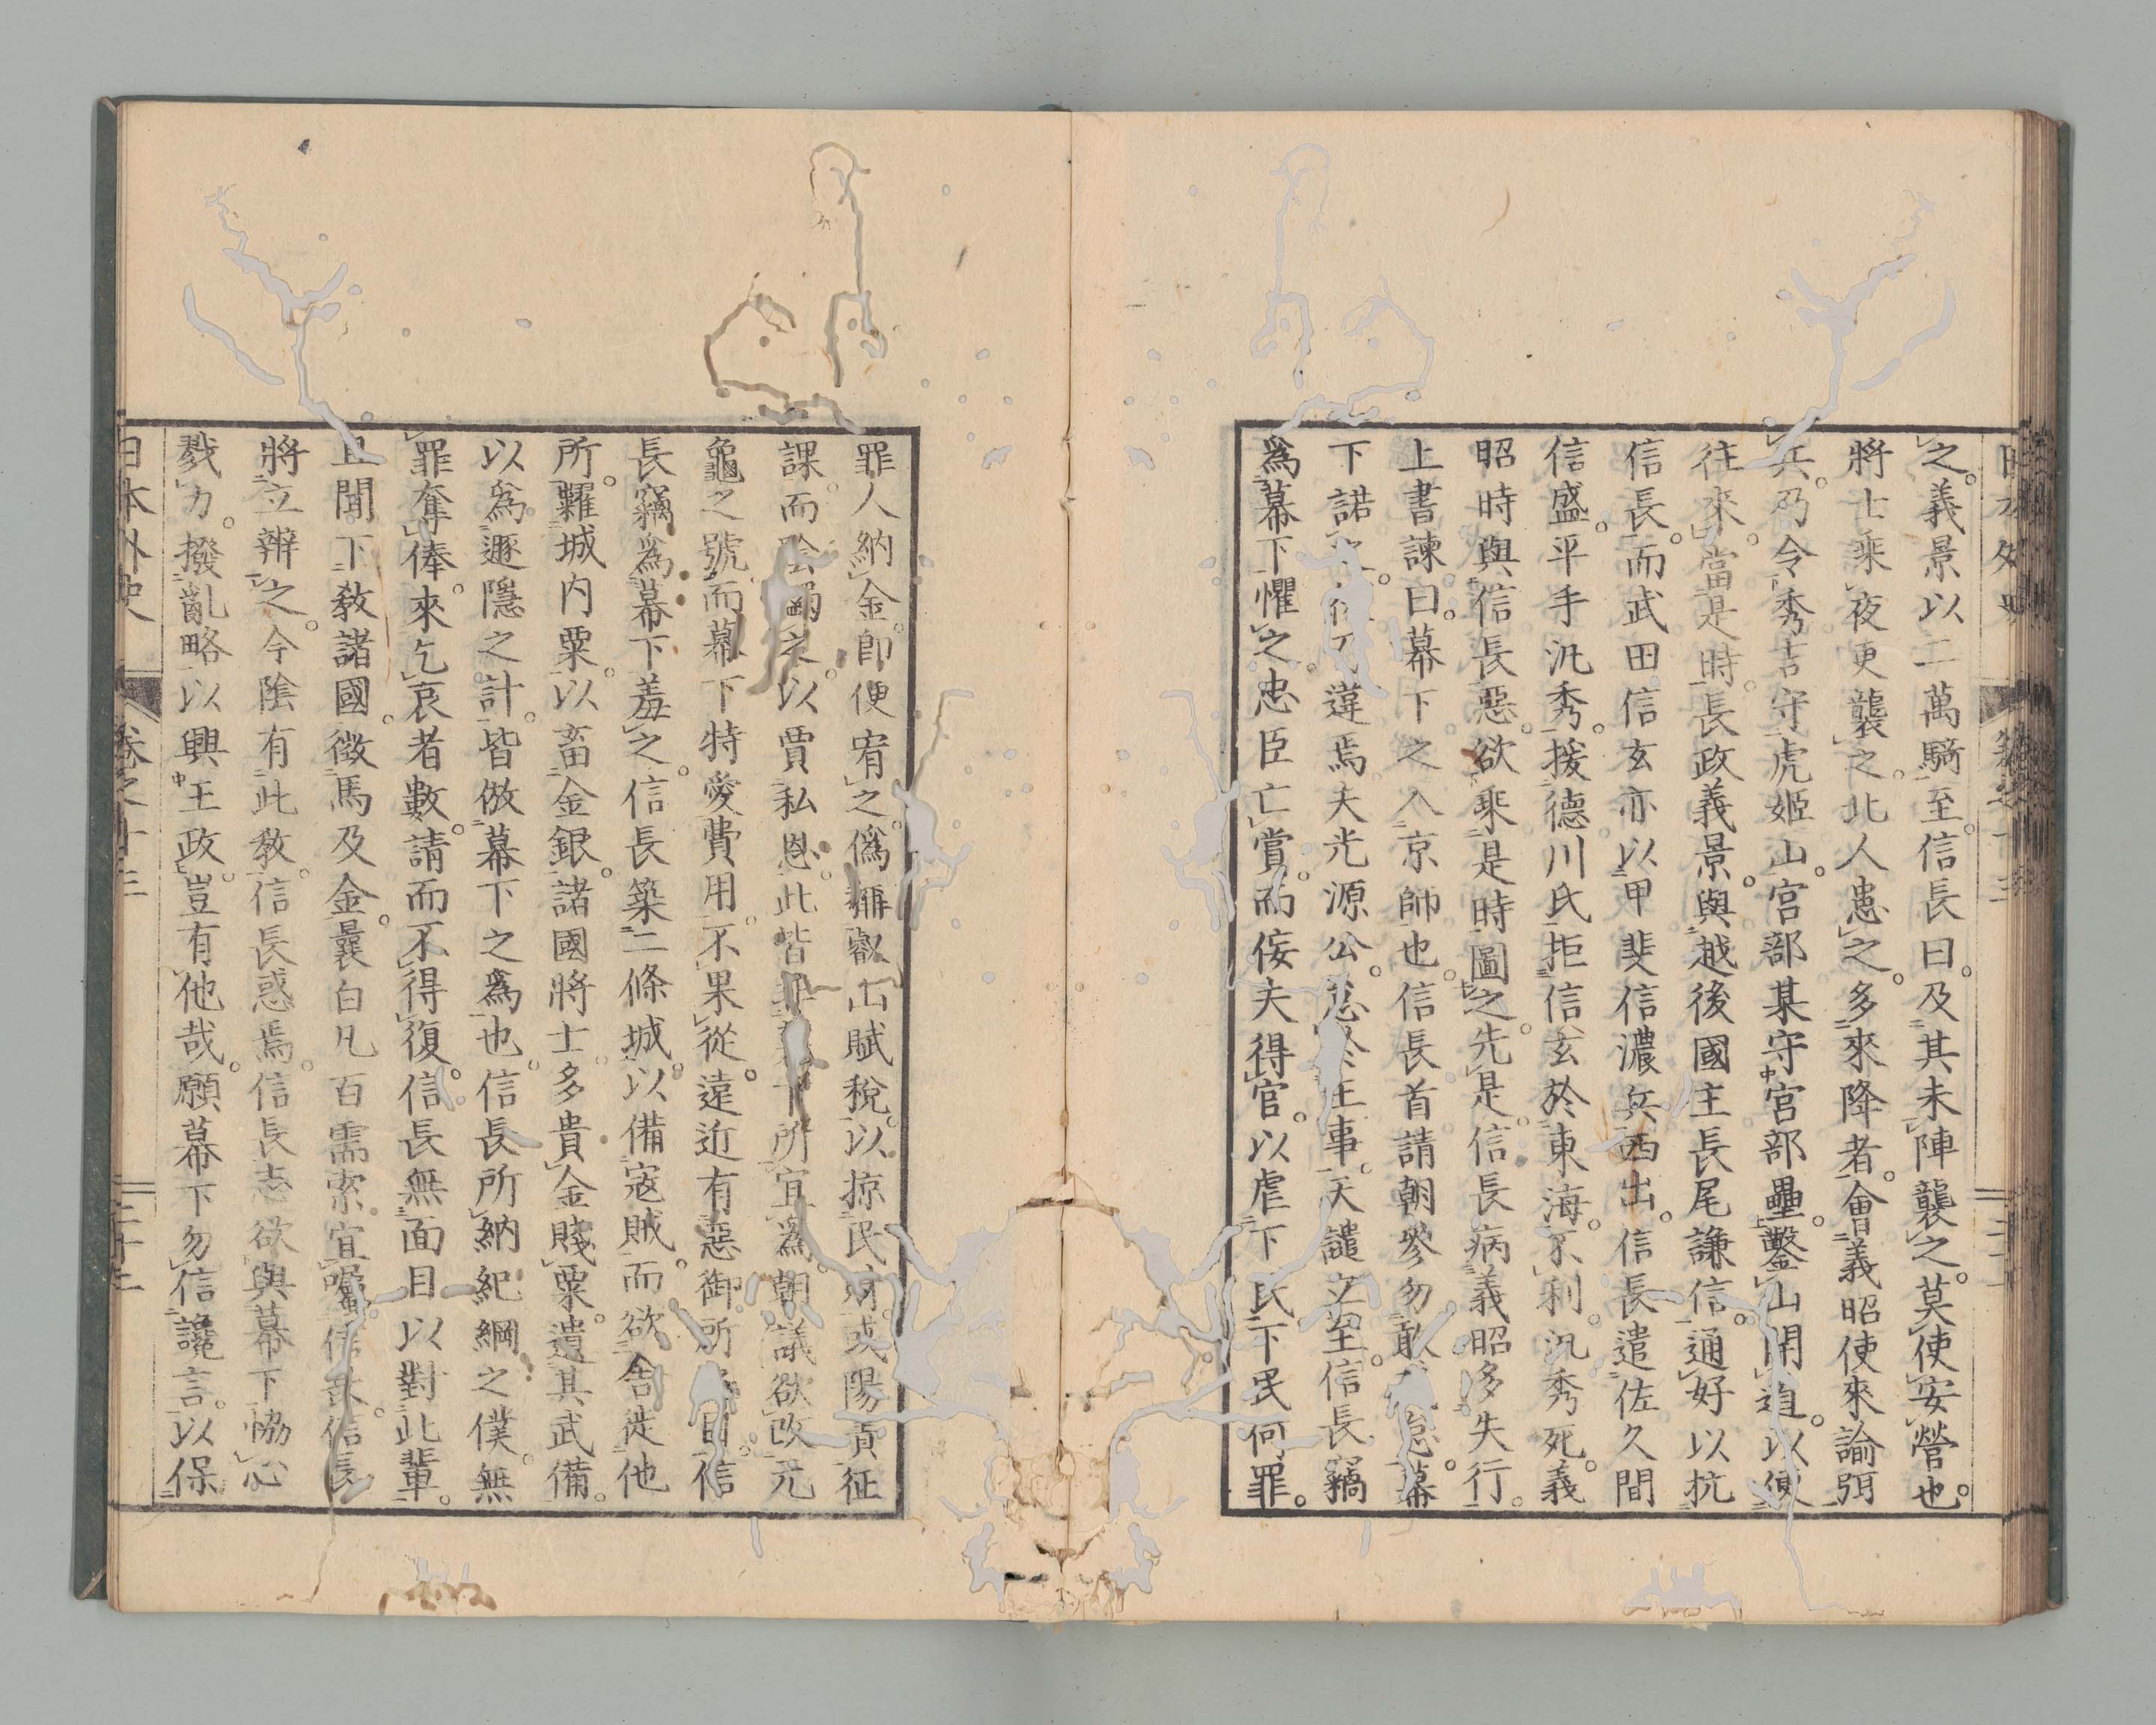 之。義景以二萬騎至。信長曰。及其未陣襲之。莫使安營也。
將士乘夜更襲之。北人患之。多來降者。會義昭使來諭弭
兵。乃令秀吉守虎姬山。宮部某守宮部壘。鑿山開道。以便
往來。當是時。長政義景。與越後國主長尾謙信。通好以抗
信長。而武田信玄亦以甲斐信濃兵西出。信長遣佐久間
信盛。平手汎秀。援德川氏。拒信玄於東海。不利。汎秀死。義
昭時與信長惡。欲乘是時圖之。先是。信長病義昭多失行。
上書諫曰。幕下之入京師也。信長首請朝參勿敢怠。幕
下諾 違焉。夫光源公。怠於王事。天譴立至。信長竊
爲幕下懼之。忠臣亡賞。而佞夫得官。以虐下民。下民何罪。
罪人納金。卽便宥之。僞稱叡山賦稅。以掠民財。或陽責征
課。而陰 之。以賈私恩。此皆 下所宜爲。朝議欲改元
龜之號。而幕下特愛費用。不果從。遠近有惡御所 目。信
長竊爲幕下羞之。信長築二條城。以備寇賊。而欲舍徙他
所。糶城內粟。以畜金銀。諸國將士。多貴金賤粟。遺其武備。
以爲遯隱之計。皆倣幕下之爲也。信長所納紀綱之僕。無
罪奪俸。來乞哀者數。請而不得復。信長無面目以對此輩。
且聞下敎諸國。徵馬及金。曩白凡百需索。宜囑信長。信長
將立辨之。今陰有此敎。信長惑焉。信長志欲與幕下恊心
戮力。撥亂略以興王政。豈有他哉。願幕下勿信讒言。以保
日本外史 卷之十三 二十二